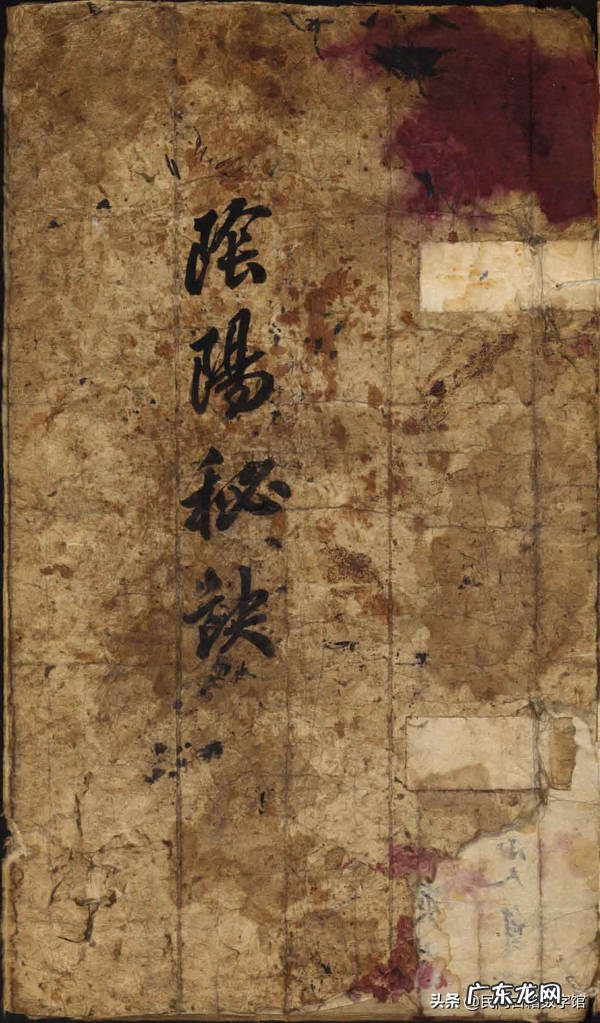 陰陽秘訣
广东龙网
头条 @民间古籍数字馆